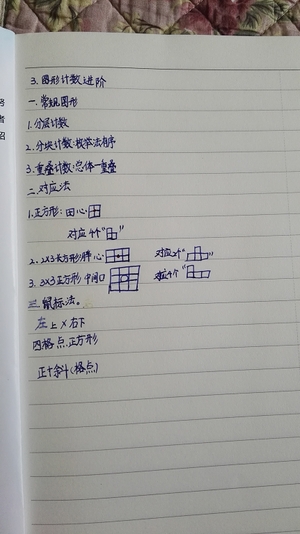 3. 图形计数进阶
一. 常规图形
1. 分层计数
2. 分块计数:枚举法有序
3. 重叠计数:总体-重叠
二. 对应法
1. 正方形: 田心
对应4个“ ”
2. 2×3长方形 心 对应2个“ ”
3. 3×3正方形 中间口 对应4个“ ”
三. 鼠标法。
左上×右下
四. 格点.正方形
正+斜(格点)